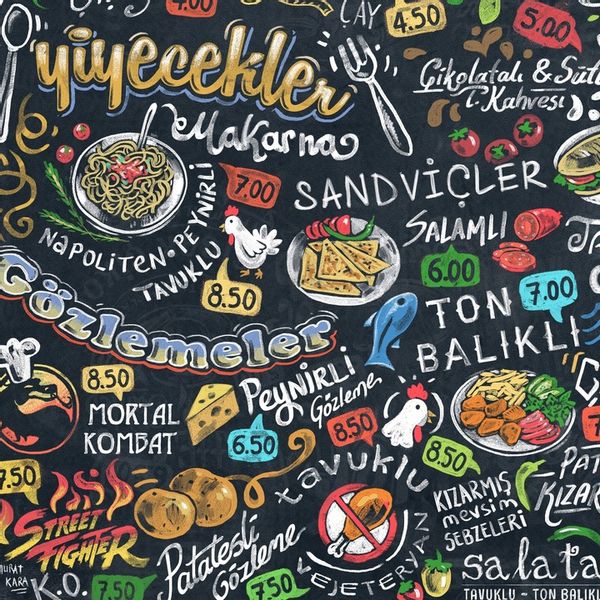 4.00
ÇAY
4.50
5.00
yiyecekler
Çikolatalı & Sütl
T. Kahvesi
Makarna
7.00
SANDVİÇLER
NAPOLİTEN • PEYNİRLİ
TAVUKLU
8.50
SALAMLI
6.00
TON
BALIKLI
7.00
Gözlemeler
8.50
MORTAL
KOMBAT
Peynirli
Gözleme
6.50
8.50
tavuklu
8.50
VEJETERYAN
7.50
STREET
FIGHTER
K.O.
7.50
Patatesli
Gözleme
7.50
KIZARMIŞ
mevsim
SEBZELERİ
PAT
KIZAR
salata
TAVUKLU - TON BALIKL
MURAT
KARA